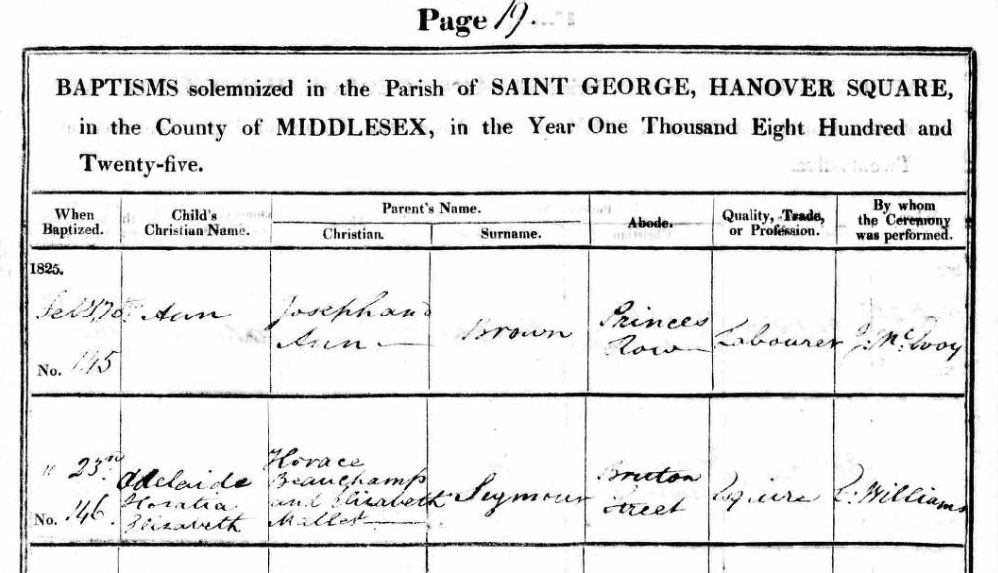 Page 19.
BAPTISMS solemnized in the Parish of SAINT GEORGE, HANOVER SQUARE,
in the County of MIDDLESEX, in the Year One Thousand Eight Hundred and
Twenty-five.
When Baptized.
Child's Christian Name.
Parent's Name.
Christian.
Surname.
Abode.
Quality, Trade, or Profession.
By whom the Ceremony was performed.
1825.
No. 145
Ann
Joseph and
Ann
Brown
Princes
Row
Labourer
" 23rd
No. 146.
Adelaide
Horatia
Elizabeth
Horace
Beauchamp
and Elizabeth
Mallet
Seymour
Bruton
Street
Esquire
Williams